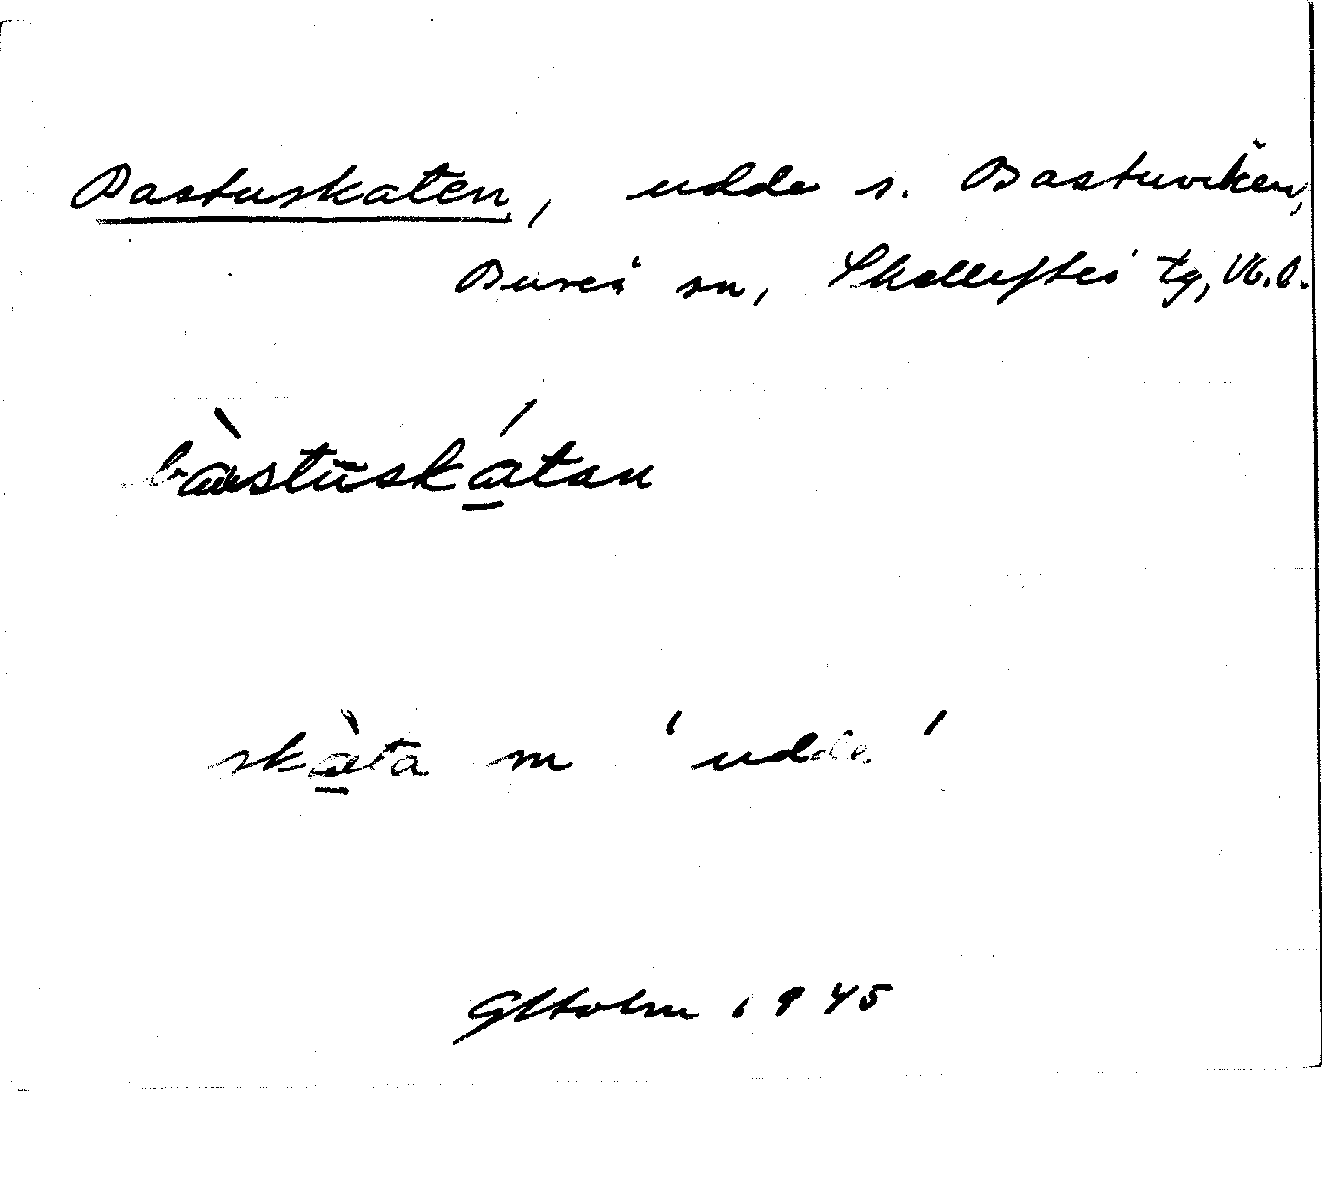 Bastuskaten, udde s. Bastuviken,
Bureå sn, Skellefteå tg, Vb.l.
bàstuskátan
skàta m 'udde'
GHolm 1945